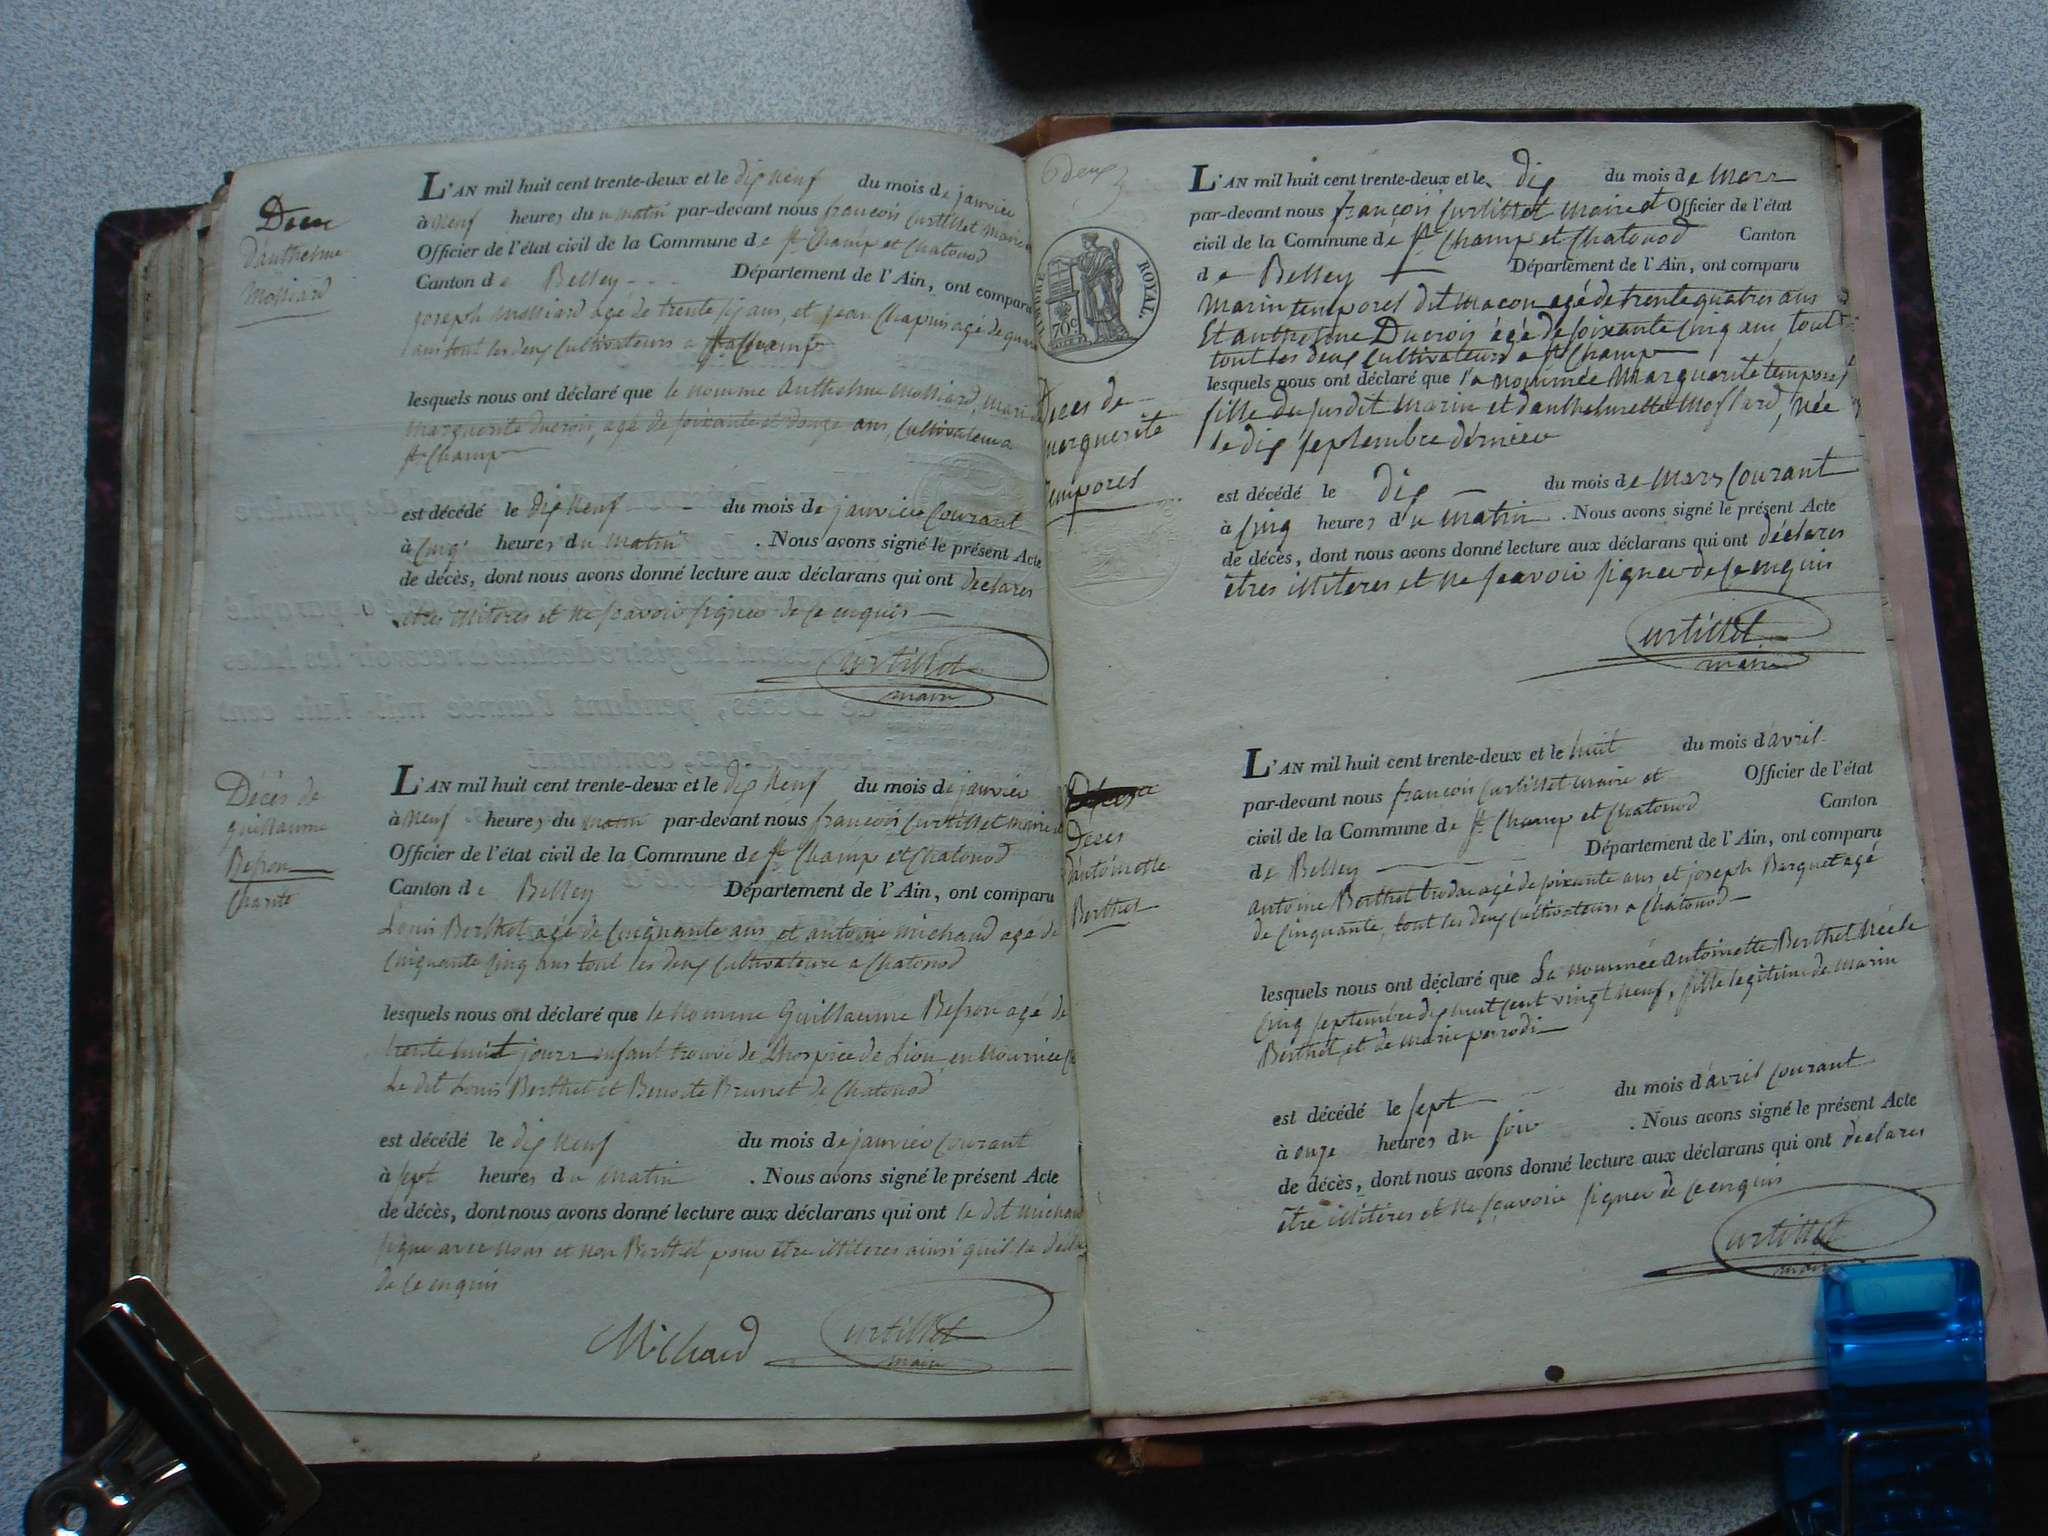 Deces
d'anthelme
Molliard
L'AN mil huit cent trente-deux et le dix neuf du mois de janvier
à neuf heures du matin par-devant nous françois Curtillet maire et
Officier de l'état civil de la Commune de St Champ et Chatonod
Canton de Belley Département de l'Ain, ont comparu
joseph Molliard agé de trente six ans, et jean Chapuis agé de quara
ans tout les deux Cultivateurs a St Champ
lesquels nous ont déclaré que le nomme anthelme Molliard, mari de
Marguerite Ducroix, agé de soixante et douze ans, Cultivateur a
St Champ
est décédé le dix neuf du mois de janvier Courant
à Cinq heures du matin . Nous avons signé le présent Acte
de décès, dont nous avons donné lecture aux déclarans qui ont déclares
etres illiteres et ne scavoir signer de ce enquis
Curtillet
maire
Décés de
guillaume
Besson
Charité
L'AN mil huit cent trente-deux et le dix neuf du mois de janvier
à neuf heures du matin par-devant nous françois Curtillet maire et
Officier de l'état civil de la Commune de St Champ et Chatonod
Canton de Belley Département de l'Ain, ont comparu
Louis Berthet agé de Cinquante ans et antoine Michaud agé de
Cinquante Cinq ans tout les deux Cultivateurs a Chatonod
lesquels nous ont déclaré que le nomme Guillaume Besson agé de
trente huit jours enfant trouvé de Lhospice de Lion, en Nourrice
Le dit Louis Berthet et Benoite Brunet de Chatonod
est décédé le dix neuf du mois de janvier courant
à sept heures du matin . Nous avons signé le présent Acte
de décès, dont nous avons donné lecture aux déclarans qui ont le dit Michaud
signe avec nous et non Berthet pour etre illiteres ainsi quil la declaré
de ce enquis
Michaud Curtillet
maire
deux
TIMBRE ROYAL
70c
Deces de
marguerite
temporel
L'AN mil huit cent trente-deux et le dix du mois de Mars
par-devant nous françois Curtillet Maire et Officier de l'état
civil de la Commune de St Champ et Chatonod Canton
de Belley Département de l'Ain, ont comparu
Marin temporel dit Macon agé de trente quatres ans
Et anthelme Ducroix égé de soixante Cinq ans, tout
tout les deux Cultivateurs a St Champ
lesquels nous ont déclaré que la nommée Marguerite temporel
fille du susdit Marin et d'anthelmette Mollard, née
le dix septembre dernier
est décédé le dix du mois de Mars Courant
à Cinq heures du matin . Nous avons signé le présent Acte
de décès, dont nous avons donné lecture aux déclarans qui ont déclares
êtres illiteres et ne scavoir signer de ce enquis
Curtillet
maire
Deces
d'antoinette
Berthet
L'AN mil huit cent trente-deux et le huit du mois d'avril
par-devant nous françois Curtillet maire et Officier de l'état
civil de la Commune de St Champ et Chatonod Canton
de Belley Département de l'Ain, ont comparu
antoine Berthet agé de soixante ans et joseph Barquet agé
de Cinquante, tout les deux Cultivateurs a Chatonod
lesquels nous ont déclaré que La nommée Antoinette Berthet née le
Cinq septembre dix huit Cent vingt neuf, fille legitime de Marin
Berthet, et de Marie perrodi
est décédé le sept du mois d'avril courant
à onze heures du soir . Nous avons signé le présent Acte
de décès, dont nous avons donné lecture aux déclarans qui ont déclares
être illiteres et ne sçavoir signer de ce enquis
Curtillet
maire